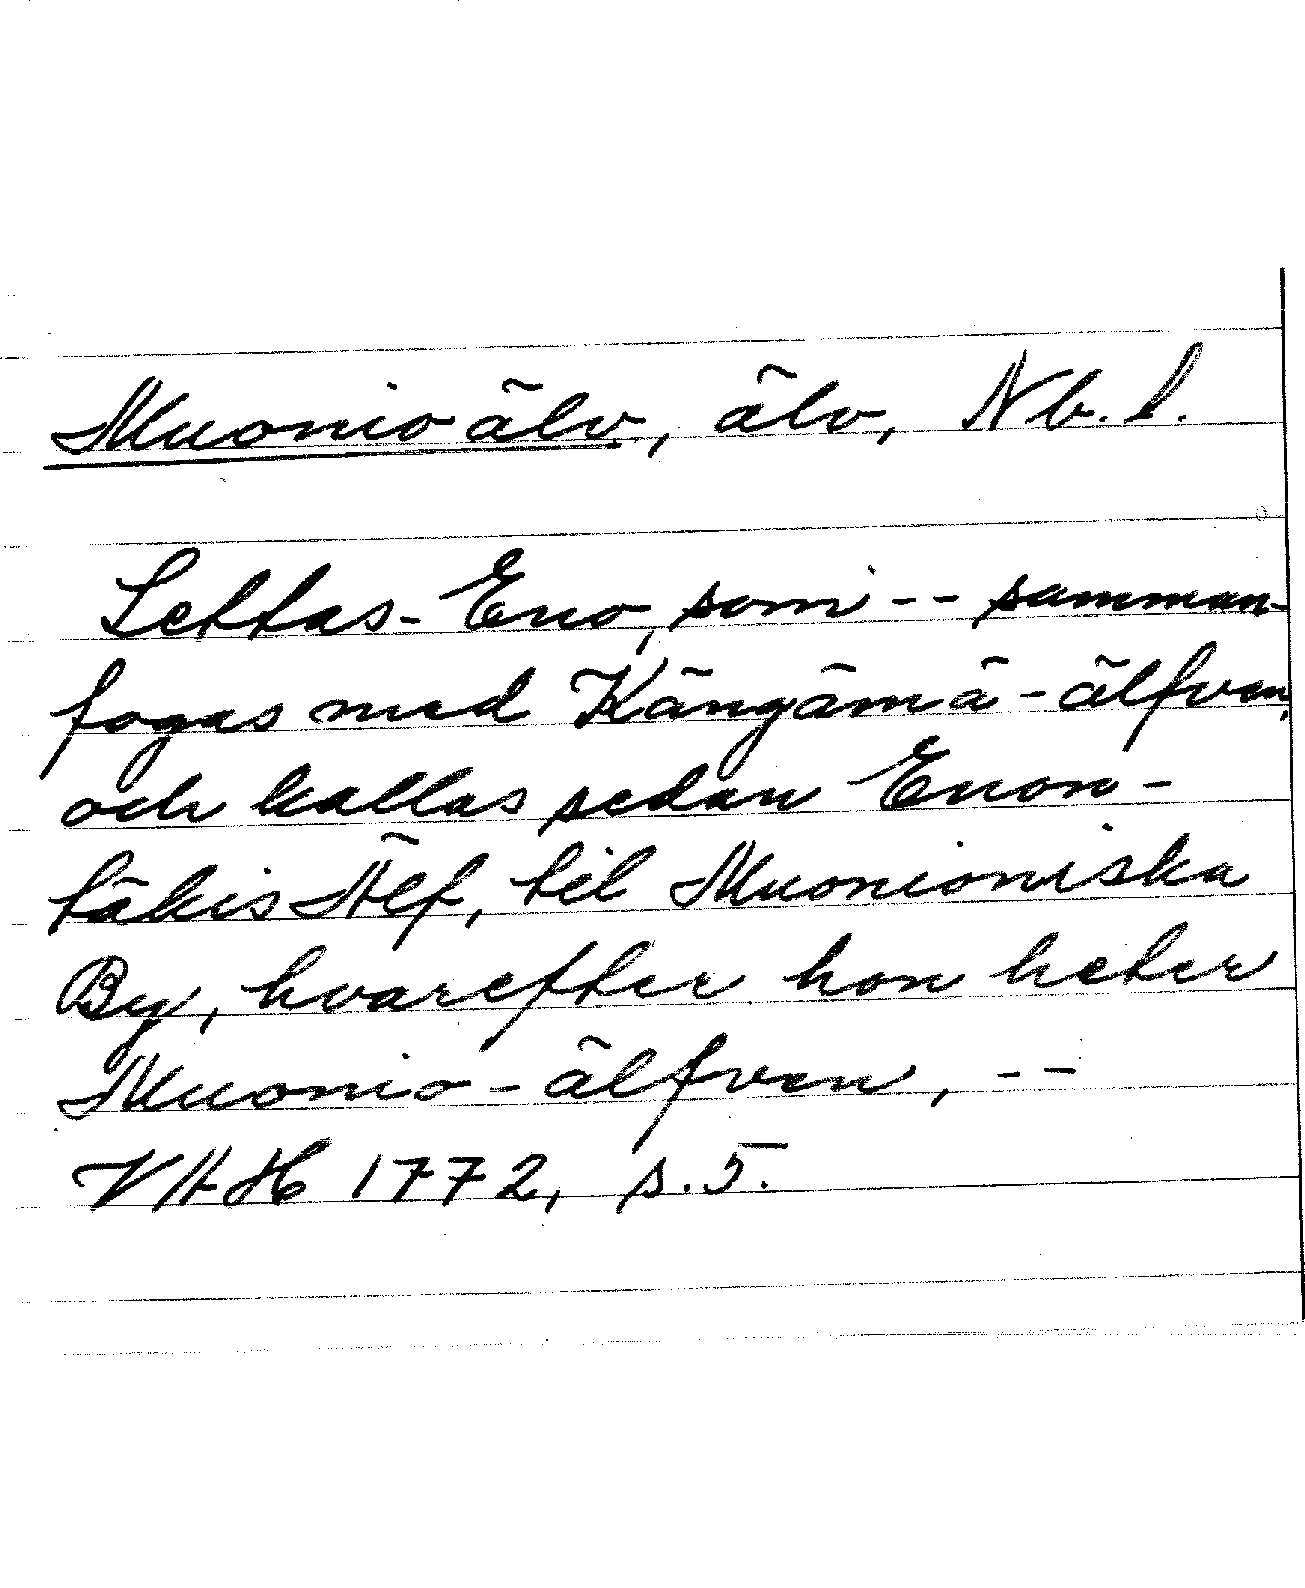 Muonio älv, älv, Nb. l.
Lettas-Eno, som -- samman-
fogas med Kängämä-älfven,
och kallas sedan Enon-
täkis Älf, til Muonioniska
By, hvarefter hon heter
Muonio-älfven, --
VAH 1772, s. 5.